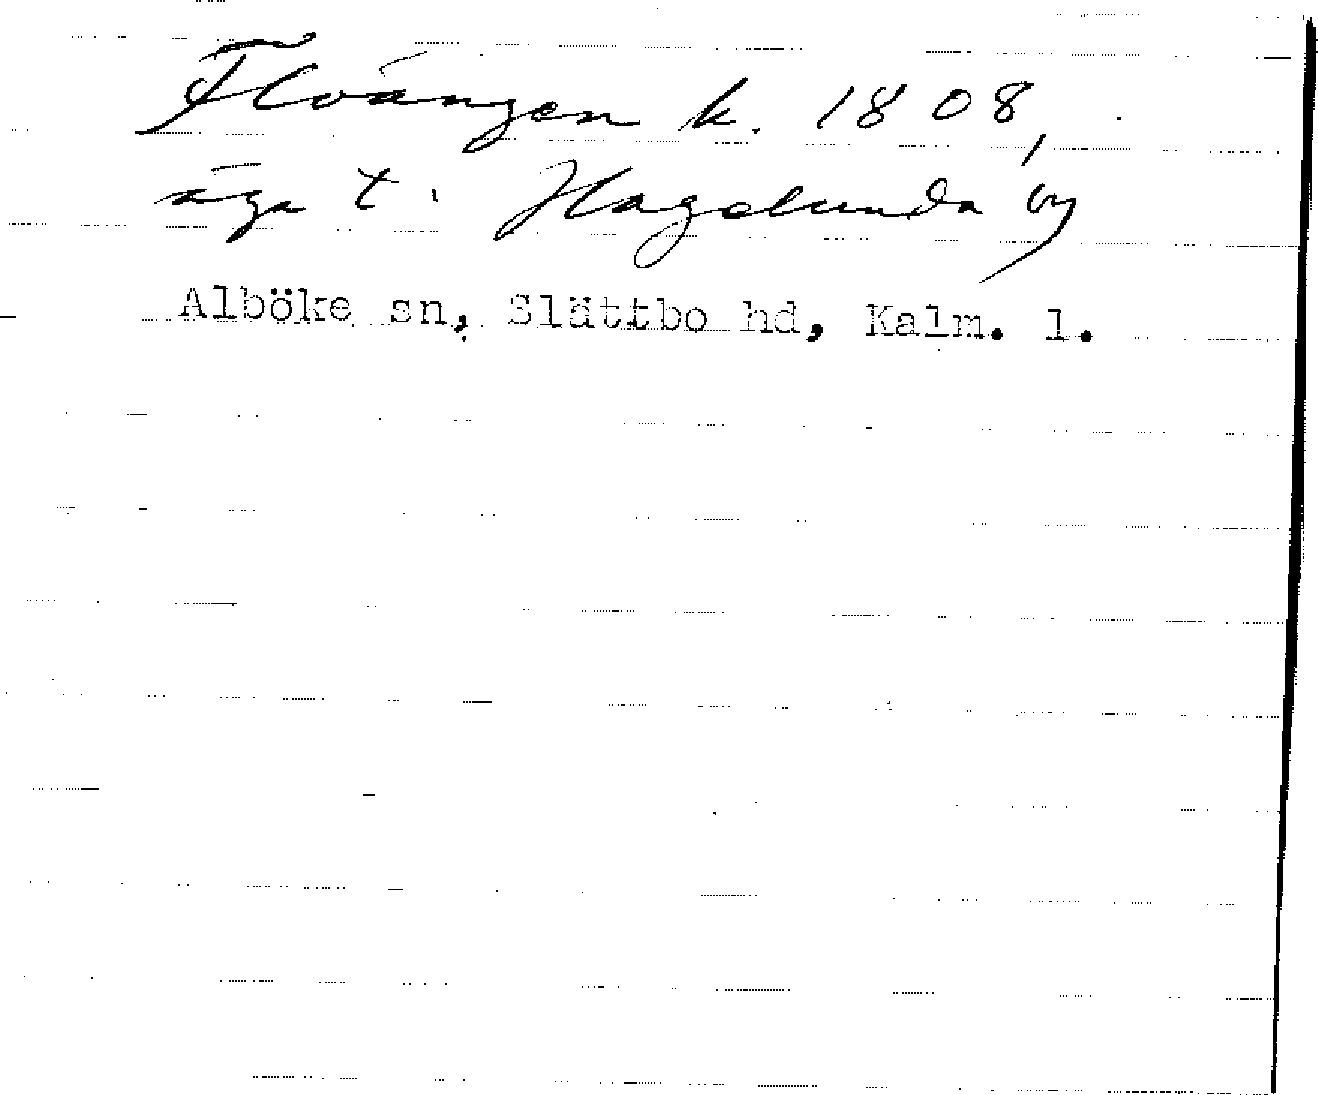 Flvängen k. 1808,
äga t. Hagelunda by
Alböke sn, Slättbo hd, Kalm. l.